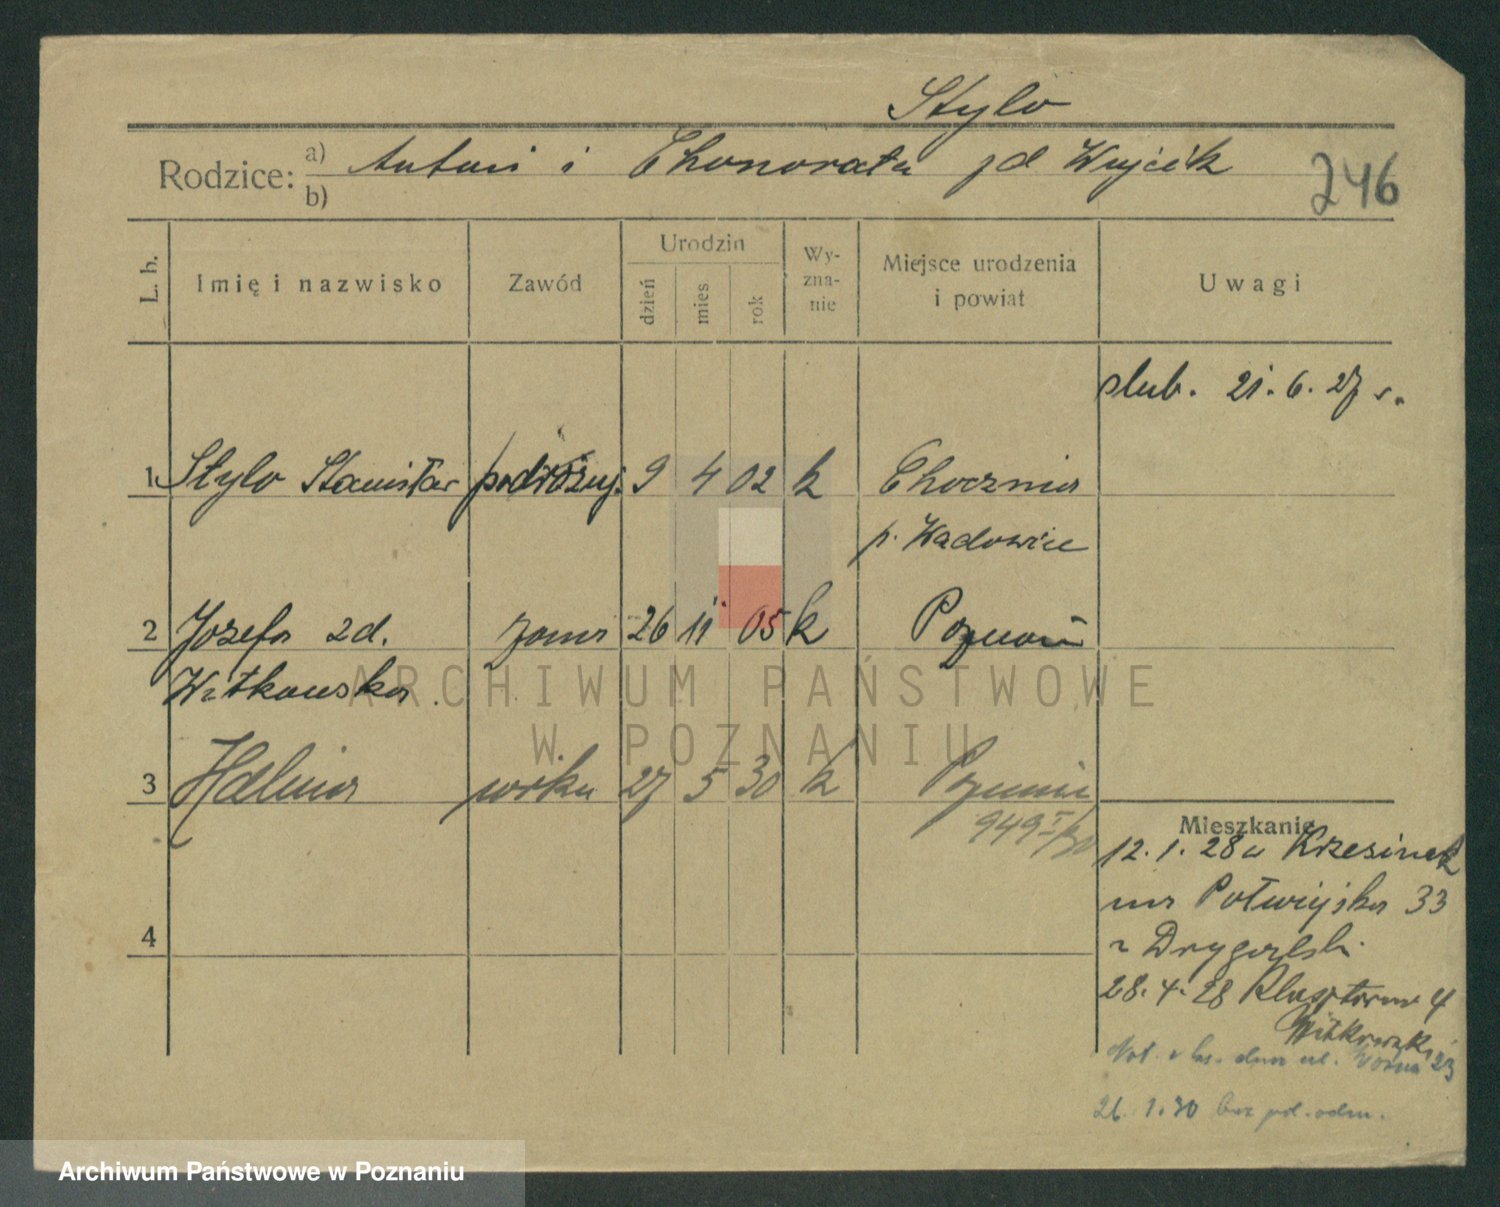 Stylo
Rodzice: a) Antoni i Chonorata zd Wujcik
b)
246
L. b.
Imię i nazwisko
Zawód
Urodzin
dzień
mies
rok
Wy-
zna-
nie
Miejsce urodzenia
i powiat
Uwagi
slub. 21.6.27 r.
1 Stylo Stanisław podróżuj. 9 4 02 k Chocznia
p. Wadowice
2 Józefa zd. żona 26 11 05 k Poznań
Witkowska
3 Halina córka 27 5 30 k Poznań
949 I/30
4
Mieszkanie
12.1.28 u Krzesinek
na Półwiejska 33
Drygalski
28.4.28 Klasztorna 4
Witkowski
Not. ul. Woźna 23
26.1.30 bez
ARCHIWUM PAŃSTWOWE
W POZNANIU
Archiwum Państwowe w Poznaniu